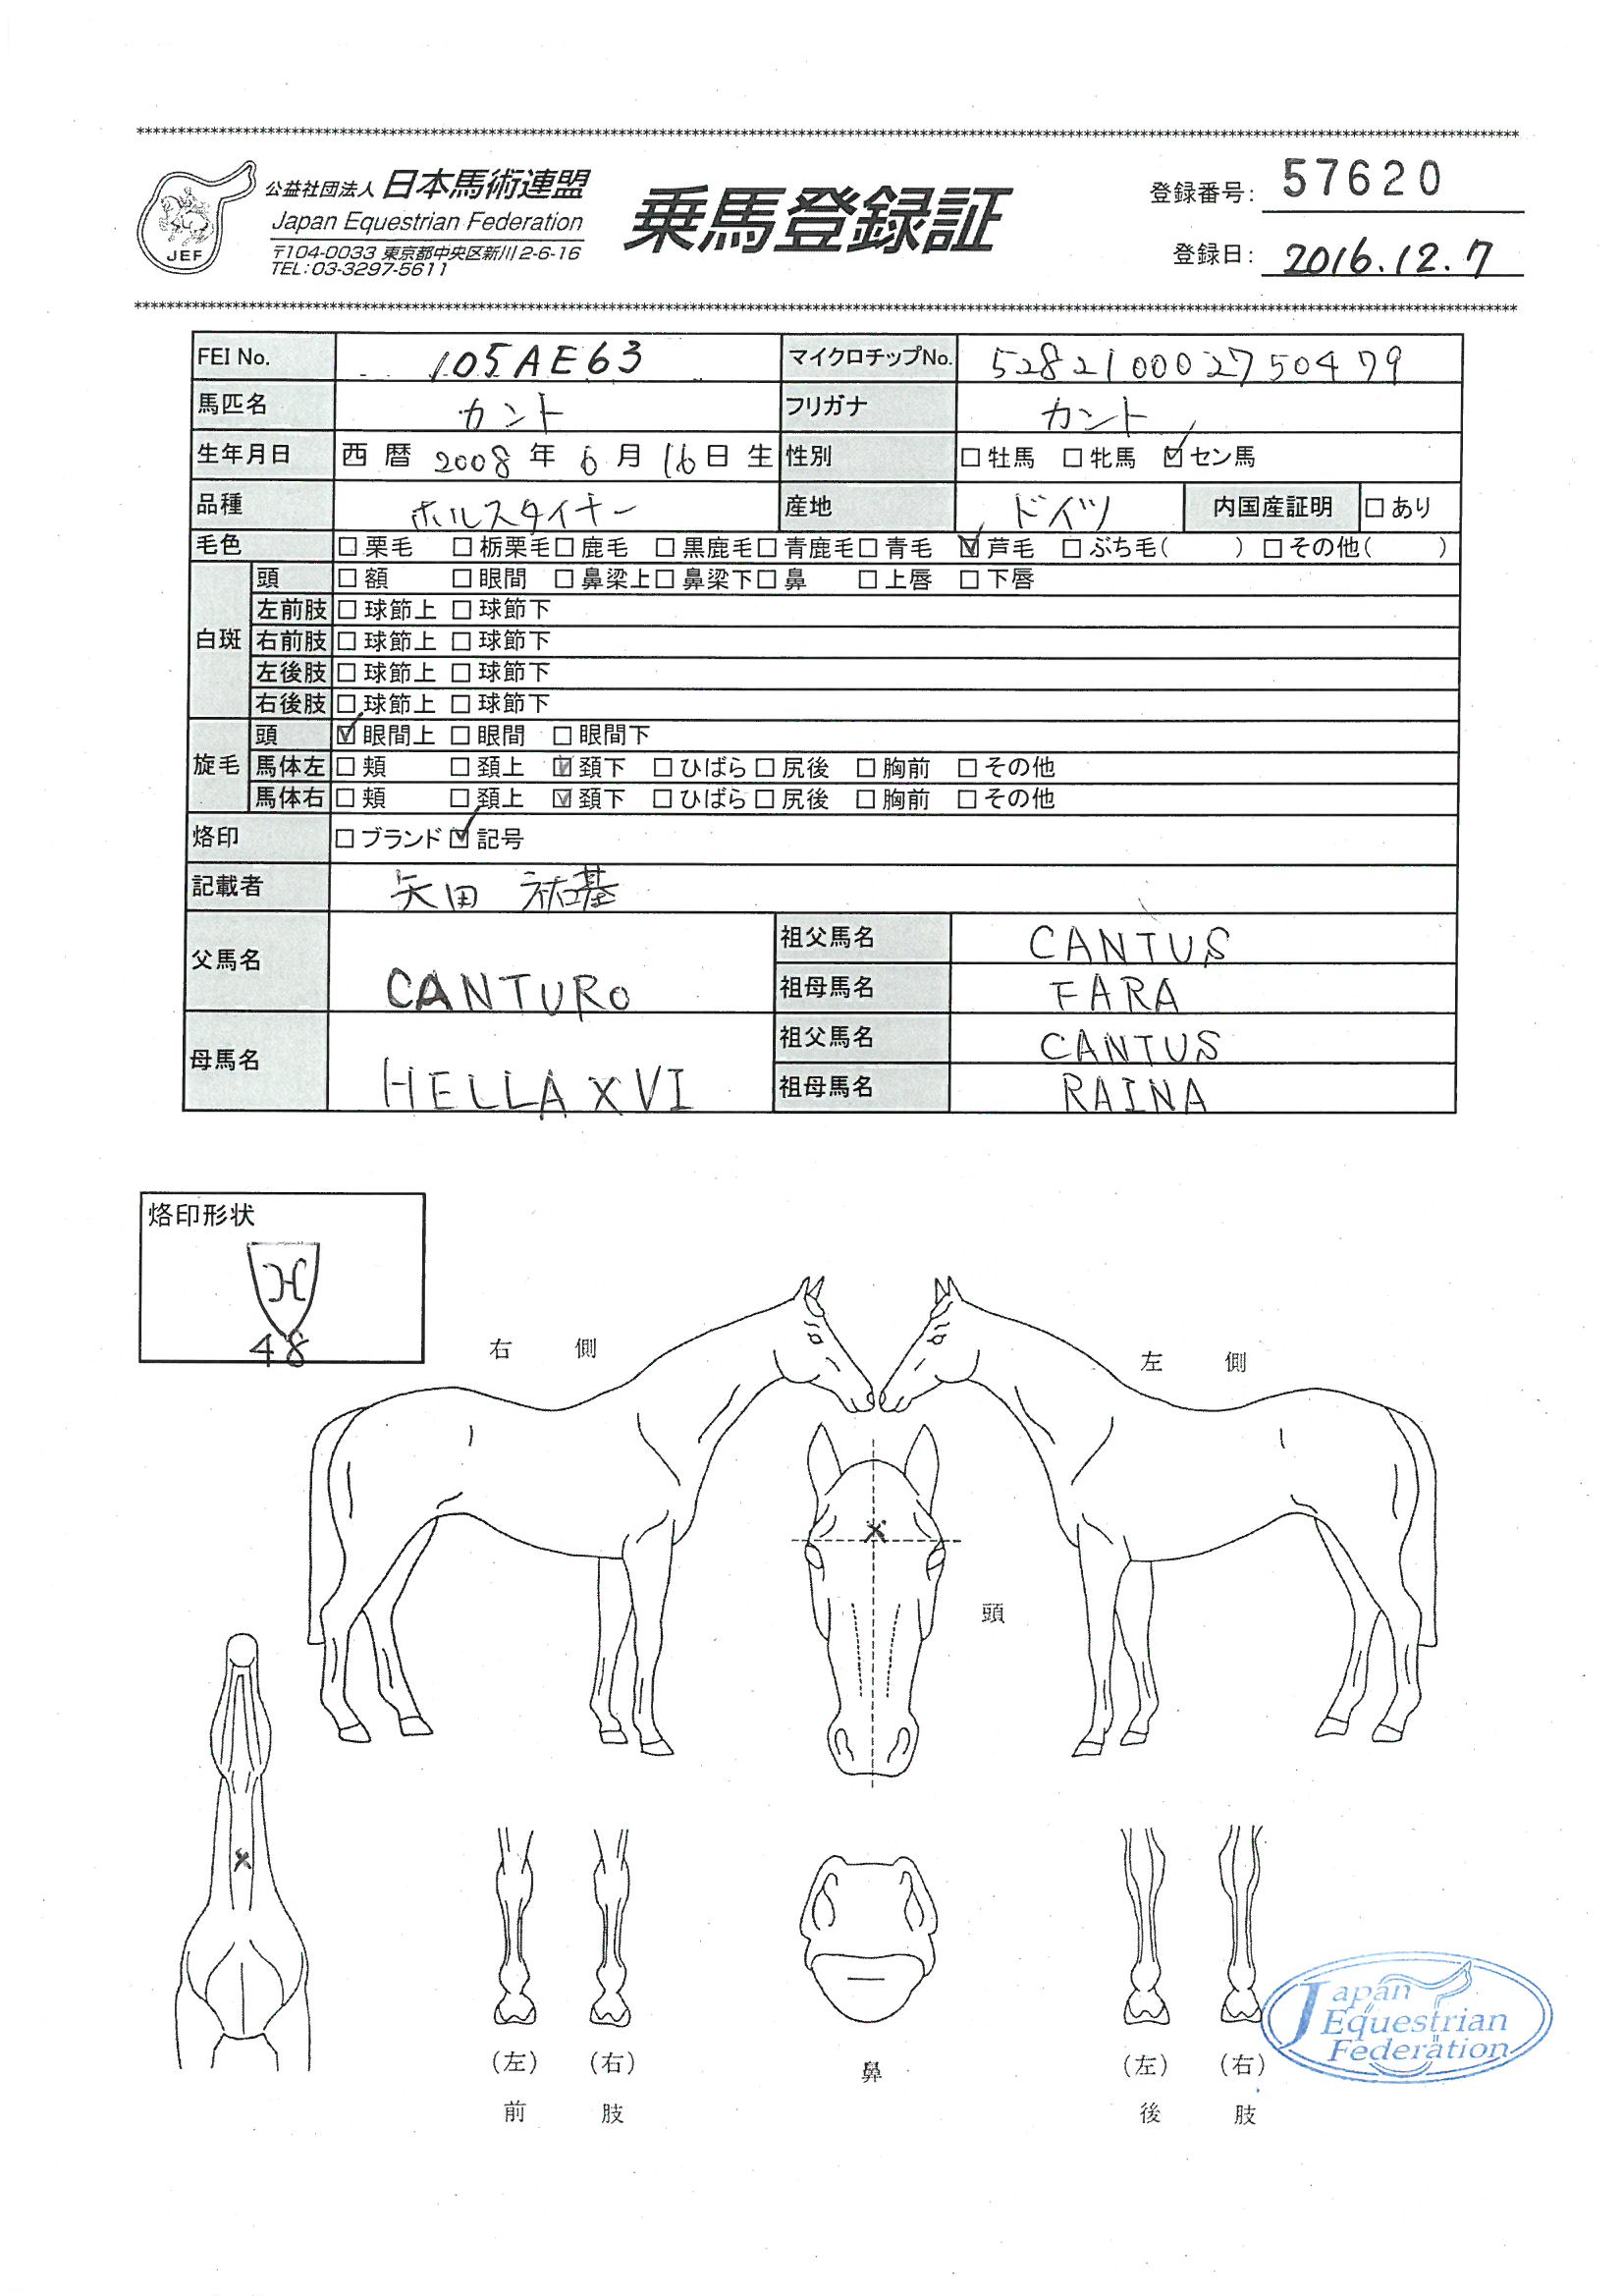 公益社団法人 日本馬術連盟
Japan Equestrian Federation
〒104-0033 東京都中央区新川2-6-16
TEL:03-3297-5611
JEF
乗馬登録証
登録番号: 57620
登録日: 2016.12.7
FEI No. 105AE63 マイクロチップNo. 528210002750479
馬匹名 カント フリガナ カント
生年月日 西暦 2008 年 6 月 16 日 生 性別 □牡馬 □牝馬 ☑セン馬
品種 ホルスタイナー 産地 ドイツ 内国産証明 □あり
毛色 □栗毛 □栃栗毛 □鹿毛 □黒鹿毛 □青鹿毛 □青毛 ☑芦毛 □ぶち毛( ) □その他( )
白斑 頭 □額 □眼間 □鼻梁上 □鼻梁下 □鼻 □上唇 □下唇
左前肢 □球節上 □球節下
右前肢 □球節上 □球節下
左後肢 □球節上 □球節下
右後肢 □球節上 □球節下
旋毛 頭 ☑眼間上 □眼間 □眼間下
馬体左 □頬 □頚上 ☑頚下 □ひばら □尻後 □胸前 □その他
馬体右 □頬 □頚上 ☑頚下 □ひばら □尻後 □胸前 □その他
烙印 □ブランド ☑記号
記載者 矢田 祐基
父馬名 CANTURO 祖父馬名 CANTUS
祖母馬名 FARA
母馬名 HELLA XVI 祖父馬名 CANTUS
祖母馬名 RAINA
烙印形状
H
48
右側
左側
頭
(左) (右)
前肢
鼻
(左) (右)
後肢
Japan
Equestrian
Federation